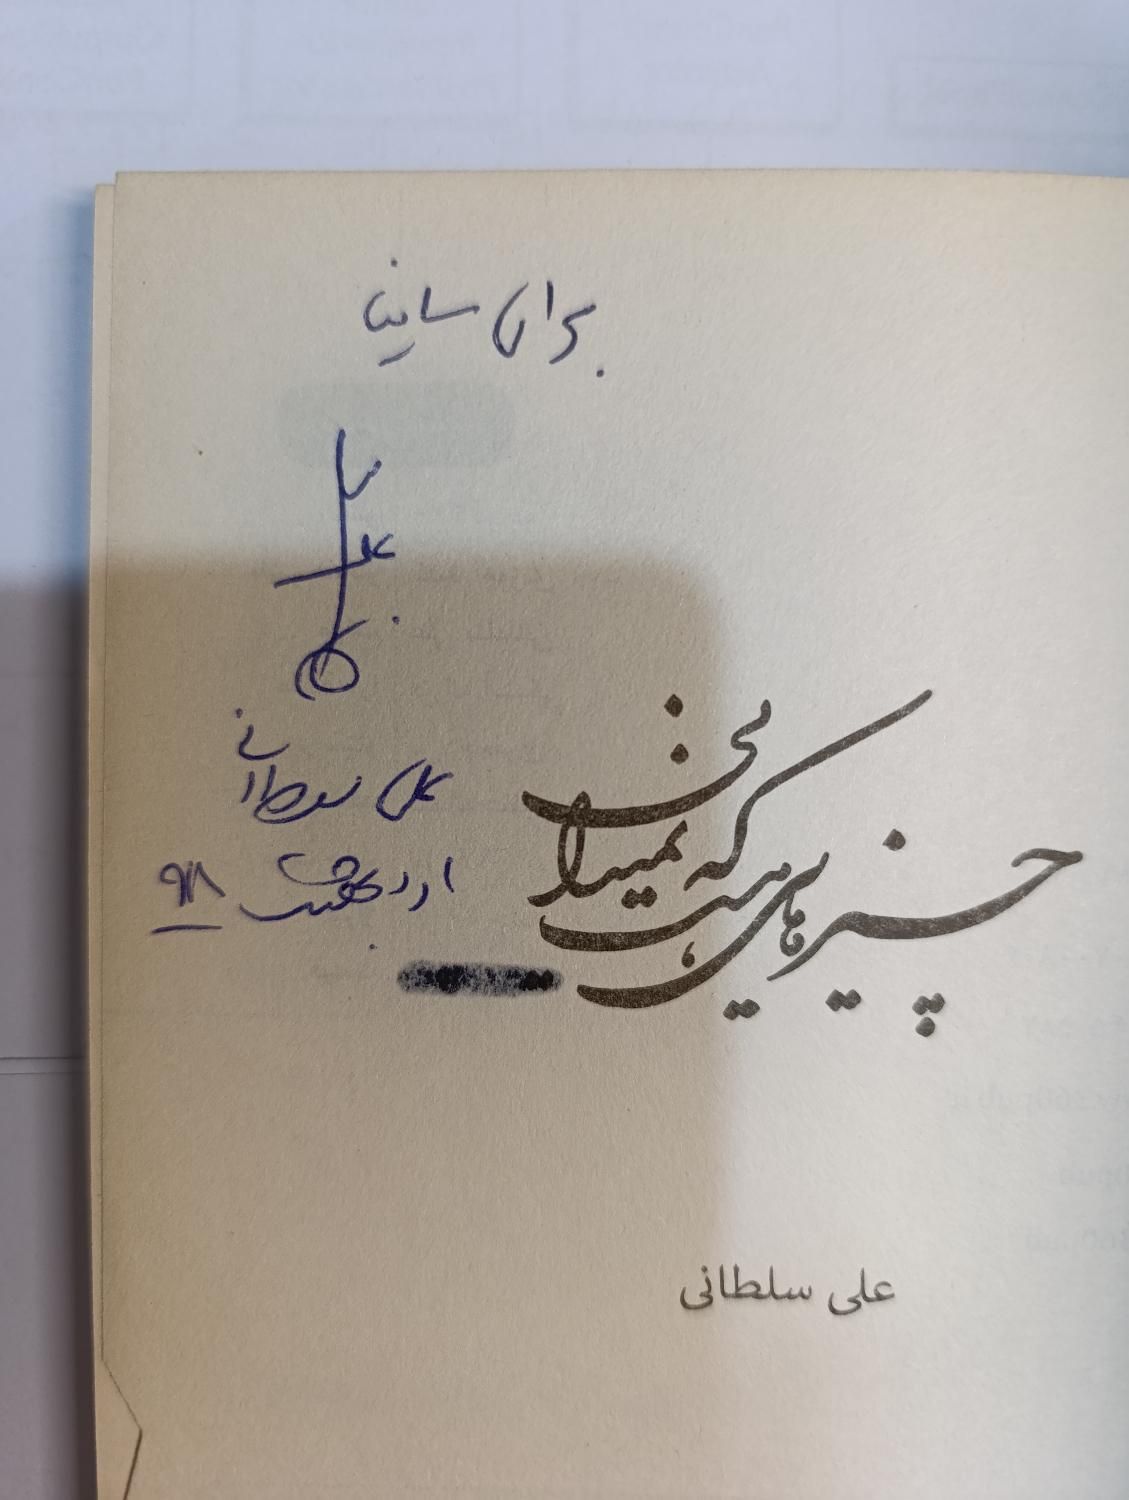 برای ساینا
علی سلطانی
اردیبهشت ۹۸
چیزهایی هست که نمیدانی
علی سلطانی